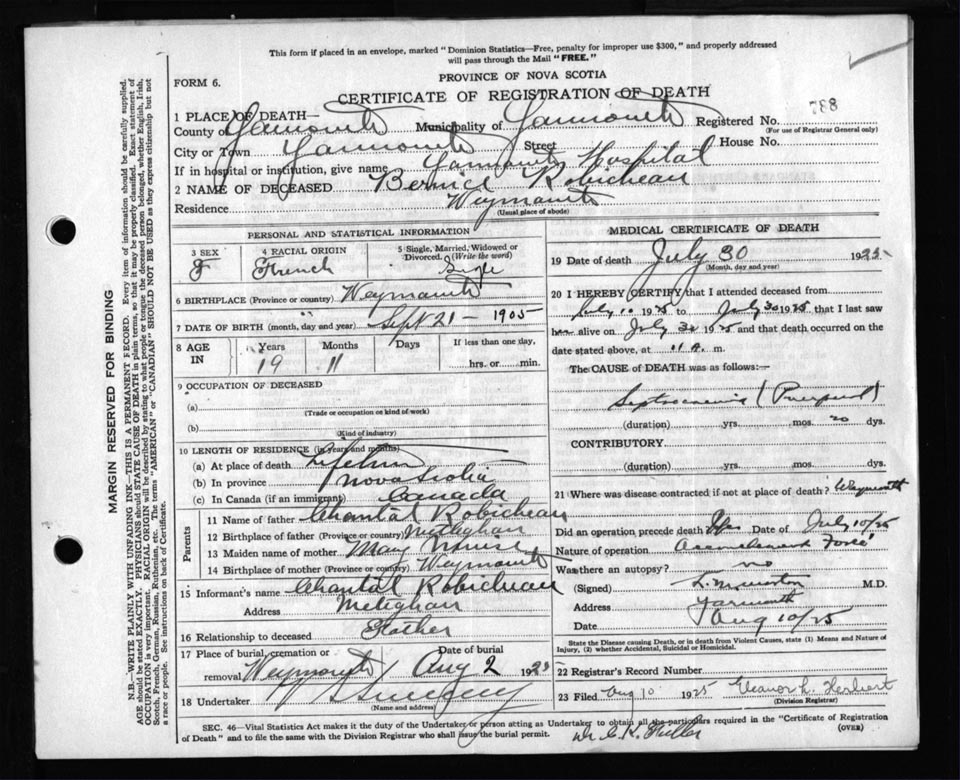 This form if placed in an envelope, marked "Dominion Statistics—Free, penalty for improper use $300," and properly addressed
will pass through the Mail "FREE."
FORM 6.
PROVINCE OF NOVA SCOTIA
CERTIFICATE OF REGISTRATION OF DEATH
788
1 PLACE OF DEATH—
County of Yarmouth Municipality of Yarmouth Registered No.
(For use of Registrar General only)
City or Town Yarmouth Street House No.
If in hospital or institution, give name Yarmouth Hospital
2 NAME OF DECEASED Bernice Robicheau
Residence Weymouth
(Usual place of abode)
PERSONAL AND STATISTICAL INFORMATION
3 SEX F
4 RACIAL ORIGIN French
5 Single, Married, Widowed or Divorced. (Write the word) Single
6 BIRTHPLACE (Province or country) Weymouth
7 DATE OF BIRTH (month, day and year) Sept 21 - 1905
8 AGE IN Years 19 Months 11 Days If less than one day, hrs. or min.
9 OCCUPATION OF DECEASED
(a)
(Trade or occupation or kind of work)
(b)
(Kind of industry)
10 LENGTH OF RESIDENCE (in years and months)
(a) At place of death Lifetime
(b) In province Nova Scotia
(c) In Canada (if an immigrant) Canada
Parents
11 Name of father Chantal Robicheau
12 Birthplace of father (Province or country) Meteghan
13 Maiden name of mother May
14 Birthplace of mother (Province or country) Weymouth
15 Informant's name Chantal Robicheau
Address Meteghan
16 Relationship to deceased Father
17 Place of burial, cremation or removal Weymouth Date of burial Aug 2 1925
18 Undertaker
MEDICAL CERTIFICATE OF DEATH
19 Date of death July 30 1925
(Month, day and year)
20 I HEREBY CERTIFY that I attended deceased from
July 10 1925 to July 30 1925 that I last saw
her alive on July 30 1925 and that death occurred on the
date stated above, at 11 A. m.
The CAUSE of DEATH was as follows:—
Septicaemia (Puerperal)
(duration) yrs. mos. 20 dys.
CONTRIBUTORY
(duration) yrs. mos. dys.
21 Where was disease contracted if not at place of death? Weymouth
Did an operation precede death Yes Date of July 10/25
Nature of operation Accouchement Forcé
Was there an autopsy? no
(Signed) M.D.
Address Yarmouth
Date Aug 10/25
State the Disease causing Death, or in death from Violent Causes, state (1) Means and Nature of
Injury, (2) whether Accidental, Suicidal or Homicidal.
22 Registrar's Record Number
23 Filed Aug 10 1925 Eleanor L. Herbert
(Division Registrar)
SEC. 46—Vital Statistics Act makes it the duty of the Undertaker or person acting as Undertaker to obtain all the particulars required in the "Certificate of Registration
of Death" and to file the same with the Division Registrar who shall issue the burial permit. (OVER)
Dr. C. K. Fuller
MARGIN RESERVED FOR BINDING
N.B.—WRITE PLAINLY WITH UNFADING INK—THIS IS A PERMANENT RECORD. Every item of information should be carefully supplied.
AGE should be stated EXACTLY. PHYSICIANS should STATE CAUSE OF DEATH in plain terms, so that it may be properly classified. Exact statement of
OCCUPATION is very important. RACIAL ORIGIN will be described by stating to what people or race the deceased person belonged, whether English, Irish,
Scotch, French, German, Russian, Ruthenian, etc. The terms "AMERICAN" or "CANADIAN" SHOULD NOT BE USED as they express citizenship but not
a race or people. See instructions on back of Certificate.